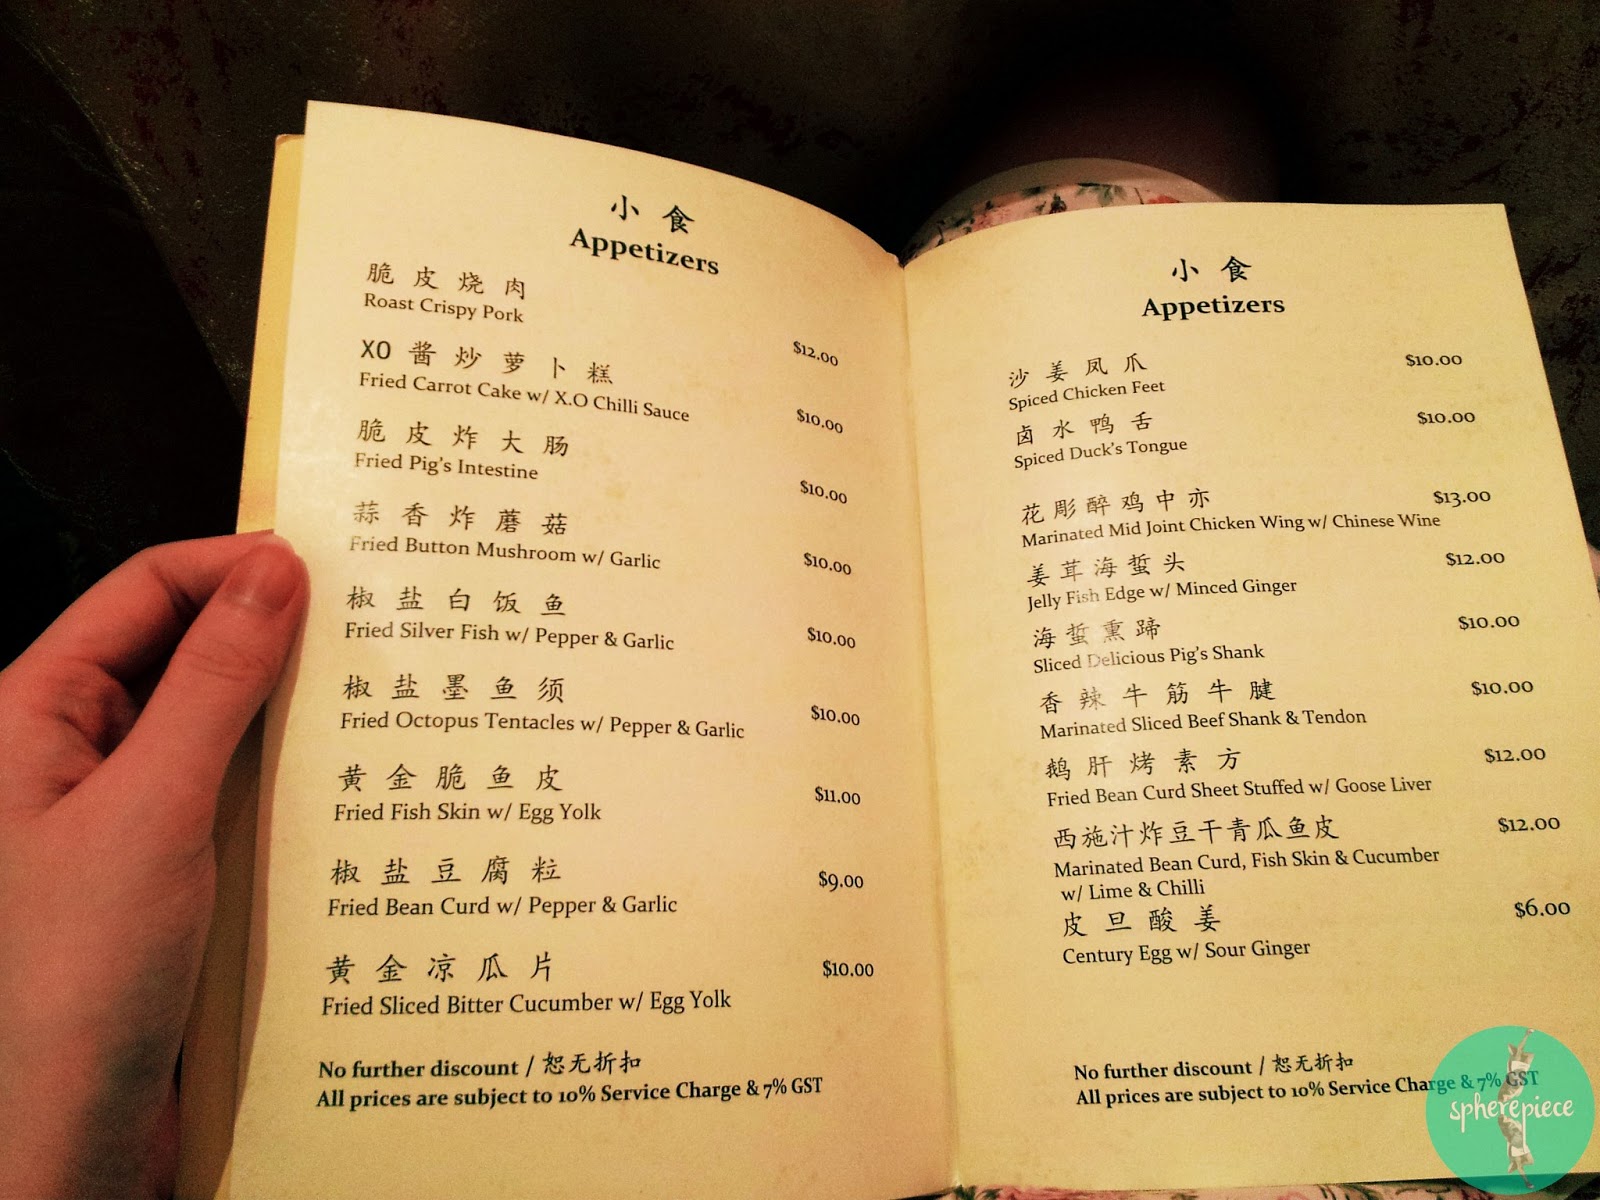 小食
Appetizers
脆皮烧肉
Roast Crispy Pork
$12.00
XO 酱炒萝卜糕
Fried Carrot Cake w/ X.O Chilli Sauce
$10.00
脆皮炸大肠
Fried Pig's Intestine
$10.00
蒜香炸蘑菇
Fried Button Mushroom w/ Garlic
$10.00
椒盐白饭鱼
Fried Silver Fish w/ Pepper & Garlic
$10.00
椒盐墨鱼须
Fried Octopus Tentacles w/ Pepper & Garlic
$10.00
黄金脆鱼皮
Fried Fish Skin w/ Egg Yolk
$11.00
椒盐豆腐粒
Fried Bean Curd w/ Pepper & Garlic
$9.00
黄金凉瓜片
Fried Sliced Bitter Cucumber w/ Egg Yolk
$10.00
No further discount / 恕无折扣
All prices are subject to 10% Service Charge & 7% GST
小食
Appetizers
沙姜凤爪
Spiced Chicken Feet
$10.00
卤水鸭舌
Spiced Duck's Tongue
$10.00
花彫醉鸡中亦
Marinated Mid Joint Chicken Wing w/ Chinese Wine
$13.00
姜茸海蜇头
Jelly Fish Edge w/ Minced Ginger
$12.00
海蜇熏蹄
Sliced Delicious Pig's Shank
$10.00
香辣牛筋牛腱
Marinated Sliced Beef Shank & Tendon
$10.00
鹅肝烤素方
Fried Bean Curd Sheet Stuffed w/ Goose Liver
$12.00
西施汁炸豆干青瓜鱼皮
Marinated Bean Curd, Fish Skin & Cucumber
w/ Lime & Chilli
$12.00
皮旦酸姜
Century Egg w/ Sour Ginger
$6.00
No further discount / 恕无折扣
All prices are subject to 10% Service Charge & 7% GST
spherepiece